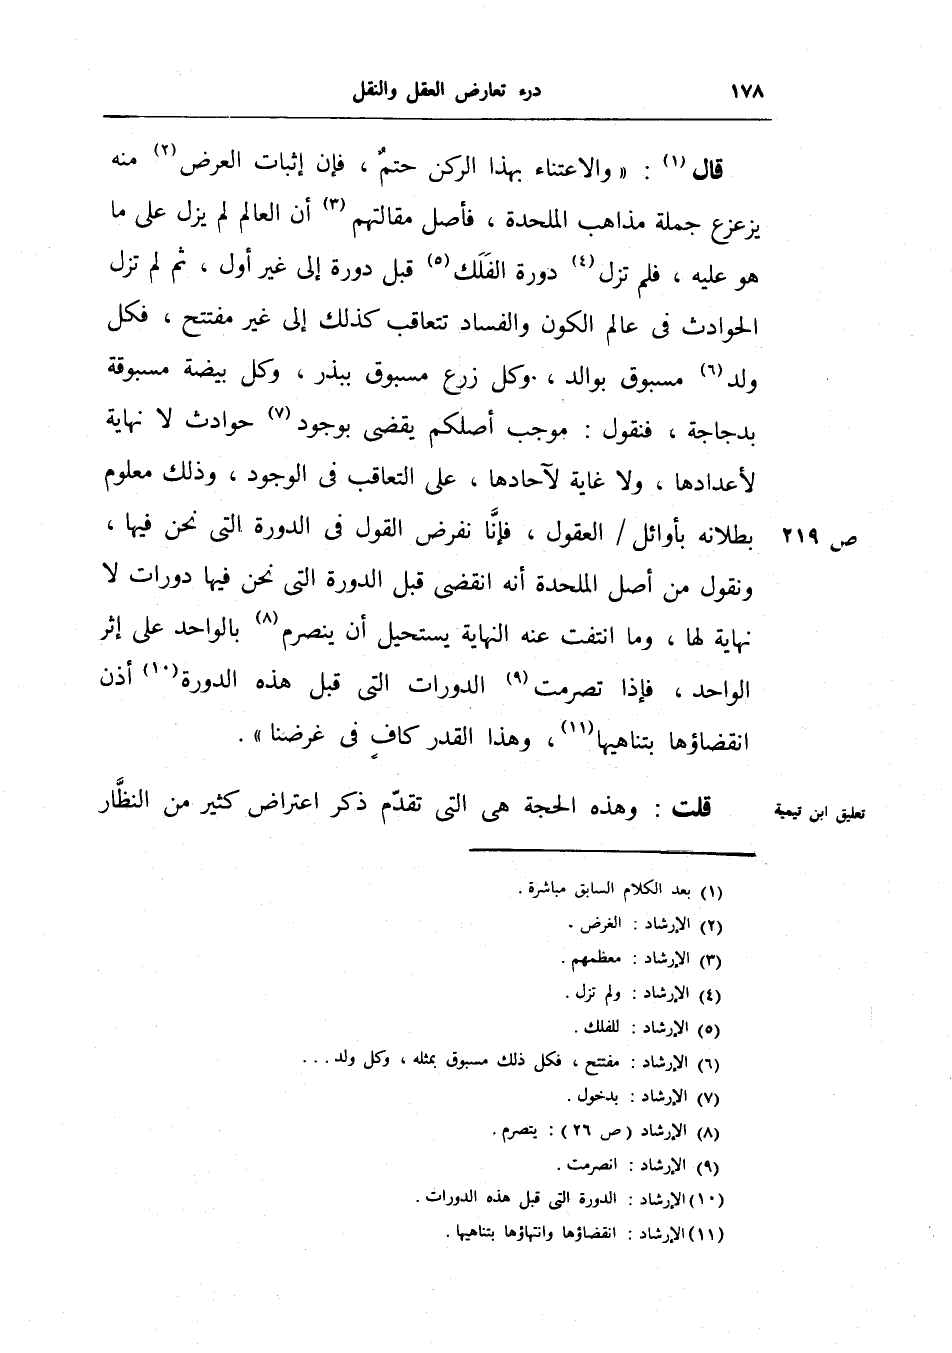 ١٧٨ درء تعارض العقل والنقل
قال (١) : « والاعتناء بهذا الركن حتمٌ ، فإن إثبات العرض (٢) منه
يزعزع جملة مذاهب الملحدة ، فأصل مقالتهم (٣) أن العالم لم يزل على ما
هو عليه ، فلم تزل (٤) دورة الفَلَك (٥) قبل دورة إلى غير أول ، ثم لم تزل
الحوادث فى عالم الكون والفساد تتعاقب كذلك إلى غير مفتتح ، فكل
ولد (٦) مسبوق بوالد ، وكل زرع مسبوق ببذر ، وكل بيضة مسبوقة
بدجاجة ، فنقول : موجب أصلكم يقضى بوجود (٧) حوادث لا نهاية
لأعدادها ، ولا غاية لآحادها ، على التعاقب فى الوجود ، وذلك معلوم
ص ٢١٩ بطلانه بأوائل / العقول ، فإنَّا نفرض القول فى الدورة التى نحن فيها ،
ونقول من أصل الملحدة أنه انقضى قبل الدورة التى نحن فيها دورات لا
نهاية لها ، وما انتفت عنه النهاية يستحيل أن ينصرم (٨) بالواحد على إثر
الواحد ، فإذا تصرمت (٩) الدورات التى قبل هذه الدورة (١٠) أذن
انقضاؤها بتناهيها (١١) ، وهذا القدر كافٍ فى غرضنا » .
تعليق ابن تيمية قلت : وهذه الحجة هى التى تقدّم ذكر اعتراض كثير من النظَّار
(١) بعد الكلام السابق مباشرة .
(٢) الإرشاد : الغرض .
(٣) الإرشاد : معظمهم .
(٤) الإرشاد : ولم تزل .
(٥) الإرشاد : للفلك .
(٦) الإرشاد : مفتتح ، فكل ذلك مسبوق بمثله ، وكل ولد . . .
(٧) الإرشاد : بدخول .
(٨) الإرشاد ( ص ٢٦ ) : يتصرم .
(٩) الإرشاد : انصرمت .
(١٠) الإرشاد : الدورة التى قبل هذه الدورات .
(١١) الإرشاد : انقضاؤها وانتهاؤها بتناهيها .